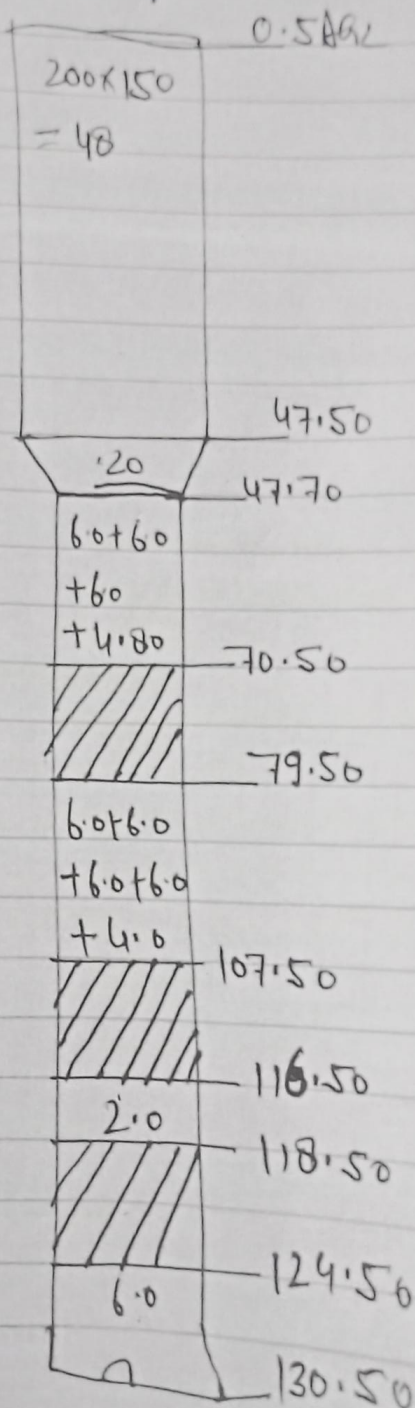 0.5AGL
200×150
= 48
47.50
.20
47.70
6.0+6.0
+60
+4.80
70.50
79.50
6.0+6.0
+6.0+6.0
+4.0
107.50
116.50
2.0
118.50
124.50
6.0
130.50